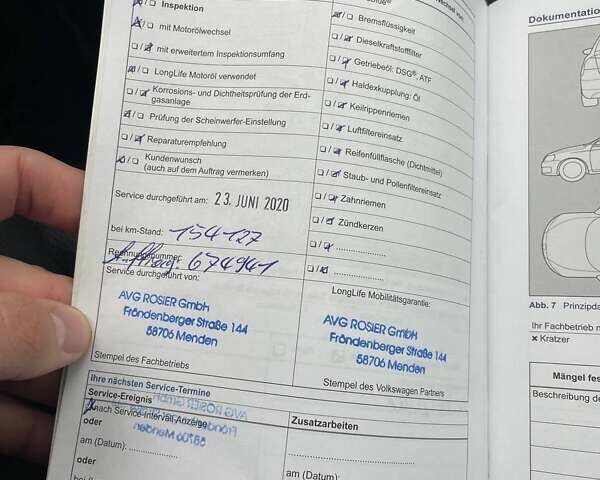 Inspektion
mit Motorölwechsel
mit erweitertem Inspektionsumfang
LongLife Motoröl verwendet
Korrosions- und Dichtheitsprüfung der Erd-
gasanlage
Prüfung der Scheinwerfer-Einstellung
Reparaturempfehlung
Kundenwunsch
(auch auf dem Auftrag vermerken)
Service durchgeführt am: 23. JUNI 2020
bei km-Stand: 154127
Rechnungsnummer: 674941
Service durchgeführt von:
AVG ROSIER GmbH
Fröndenberger Straße 144
58706 Menden
Stempel des Fachbetriebs
Bremsflüssigkeit
Dieselkraftstofffilter
Getriebeöl: DSG®, ATF
Haldexkupplung: Öl
Keilrippenriemen
Luftfiltereinsatz
Reifenfüllflasche (Dichtmittel)
Staub- und Pollenfiltereinsatz
Zahnriemen
Zündkerzen
LongLife Mobilitätsgarantie:
AVG ROSIER GmbH
Fröndenberger Straße 144
58706 Menden
Stempel des Volkswagen Partners
Ihre nächsten Service-Termine
Service-Ereignis
nach Service-Intervall-Anzeige
oder
am (Datum):
oder
Zusatzarbeiten
am (Datum):
Dokumentatio
Abb. 7 Prinzipda
Ihr Fachbetrieb n
x Kratzer
Mängel fes
Beschreibung de